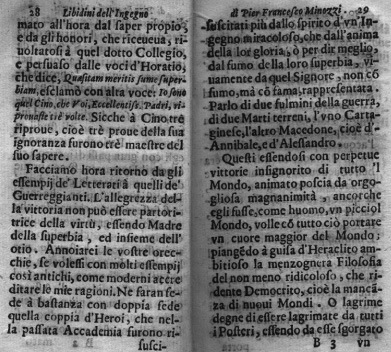 28 Libidini dell'Ingegno
mato all'hora dal saper proprio,
e da gli honori, che riceueua, ri-
uoltatosi à quel dotto Collegio,
e persuaso dalle voci d'Horatio,
che dice, Quæsitam meritis sume super-
biam, esclamò con altra voce: Io sono
quel Cino, che Voi, Eccellentiss. Padri, ri-
prouaste trè volte. Sicche à Cino trè
riproue, cioè trè proue della sua
ignoranza furono trè maestre del
suo sapere.
Facciamo hora ritorno da gli
essempij de' Letterati à quelli de'
Guerreggianti. L'allegrezza del-
la vittoria non può essere partori-
trice della virtù, essendo Madre
della superbia, ed insieme dell'
otio. Annoiarei le vostre orec-
chie, se volessi con molti essempij
così antichi, come moderni accre-
ditare le mie ragioni. Ne faran se-
de à bastanza con doppia sede
quella coppia d'Heroi, che nel-
la passata Accademia furono ri-
susci-
di Pier Francesco Minozzi. 29
suscitati più dallo spirito d'vn In-
gegno miracoloso, che dall'anima
della lor gloria, ò per dir meglio,
dal fumo della loro superbia, vi-
uamente da quel Signore, non cô
fumo, mà cô fama, rappresentata.
Parlo di due fulmini della guerra,
di due Marti terreni, l'vno Carta-
ginese, l'altro Macedone, cioè d'
Annibale, e d'Alessandro.
Questi essendosi con perpetue
vittorie insignorito di tutto 'l
Mondo, animato poscia da orgo-
gliosa magnanimità, ancorche
egli fusse, come huomo, vn picciol
Mondo, volle cô tutto ciò portare
vn cuore maggior del Mondo:
piangêdo à guisa d'Heraclito am-
bitioso la menzogniera Filosofia
del non meno ridicoloso, che ri-
dente Democrito, cioè la mancã-
za di nuoui Mondi. O lagrime
degne di essere lagrimate da tutti
i Posteri, essendo da esse sgorgato
B 3 vn